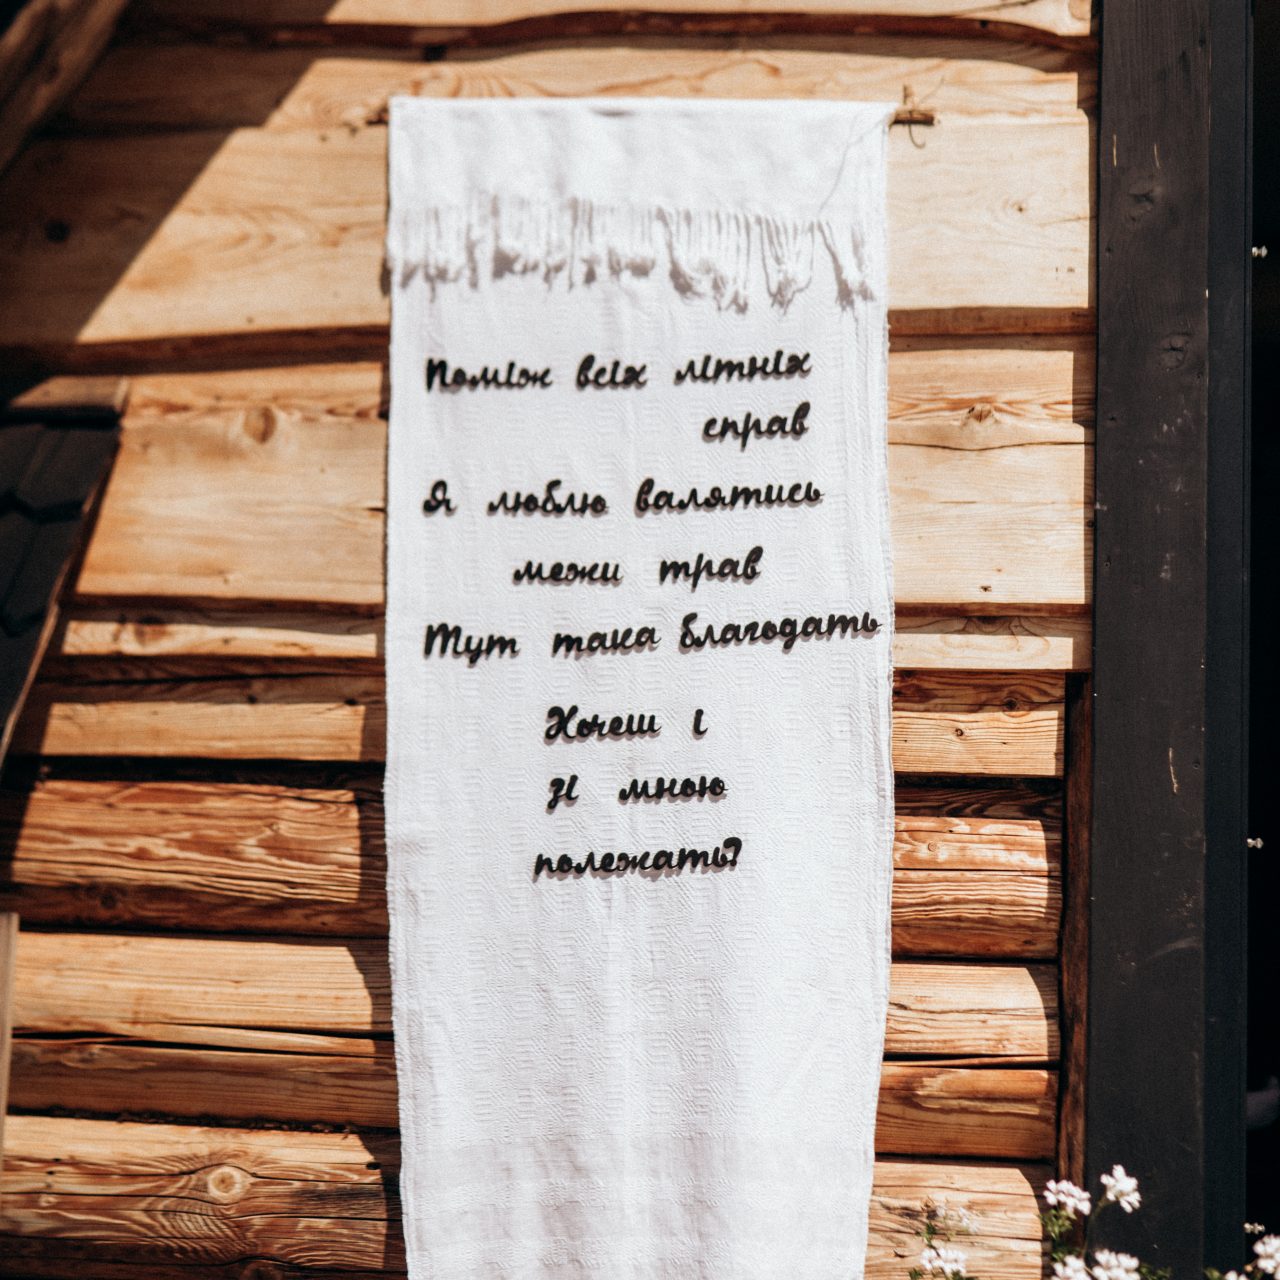 Поміж всіх літніх
справ
Я люблю валятись
межи трав
Тут така благодать
Хочеш і
зі мною
полежать?